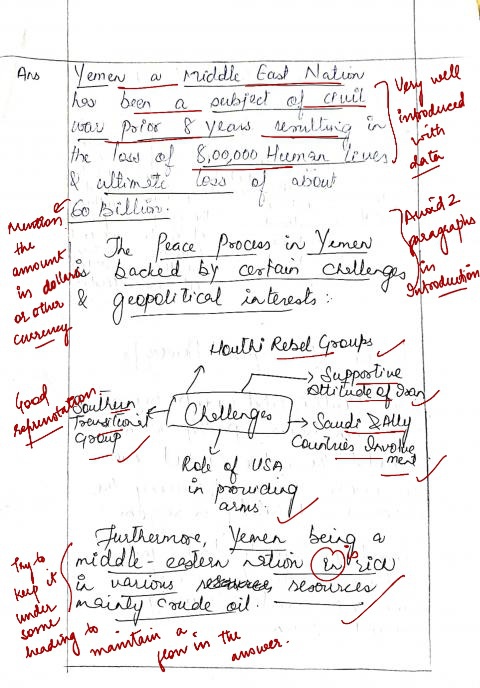 Ans
Yemen a Middle East Nation
has been a subject of civil
war prior 8 years resulting in
the loss of 8,00,000 Human lives
& ultimate loss of about
60 Billion.
Very well
introduced
with
data
Mention
the
amount
in dollars
or other
currency
The Peace Process in Yemen
is backed by certain challenges
& geopolitical interests :
Avoid 2
paragraphs
in
introduction
Houthi Rebel Groups
Supportive
attitude of Iran
Good
Southern
Transitional
Group
Challenges
Saudi & Ally
Countries Involve
ment
Role of USA
in providing
arms.
Furthermore, Yemen being a
middle-eastern nation in rich
is
in various resources
mainly crude oil.
Try to
keep it
under
some
heading to maintain a
flow in the
answer.